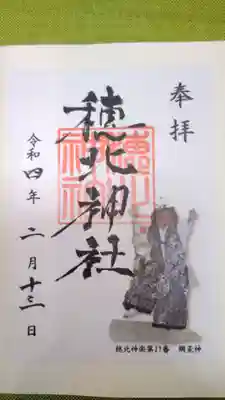 奉拝
穂北神社
令和四年二月十三日
穂北神楽第17番